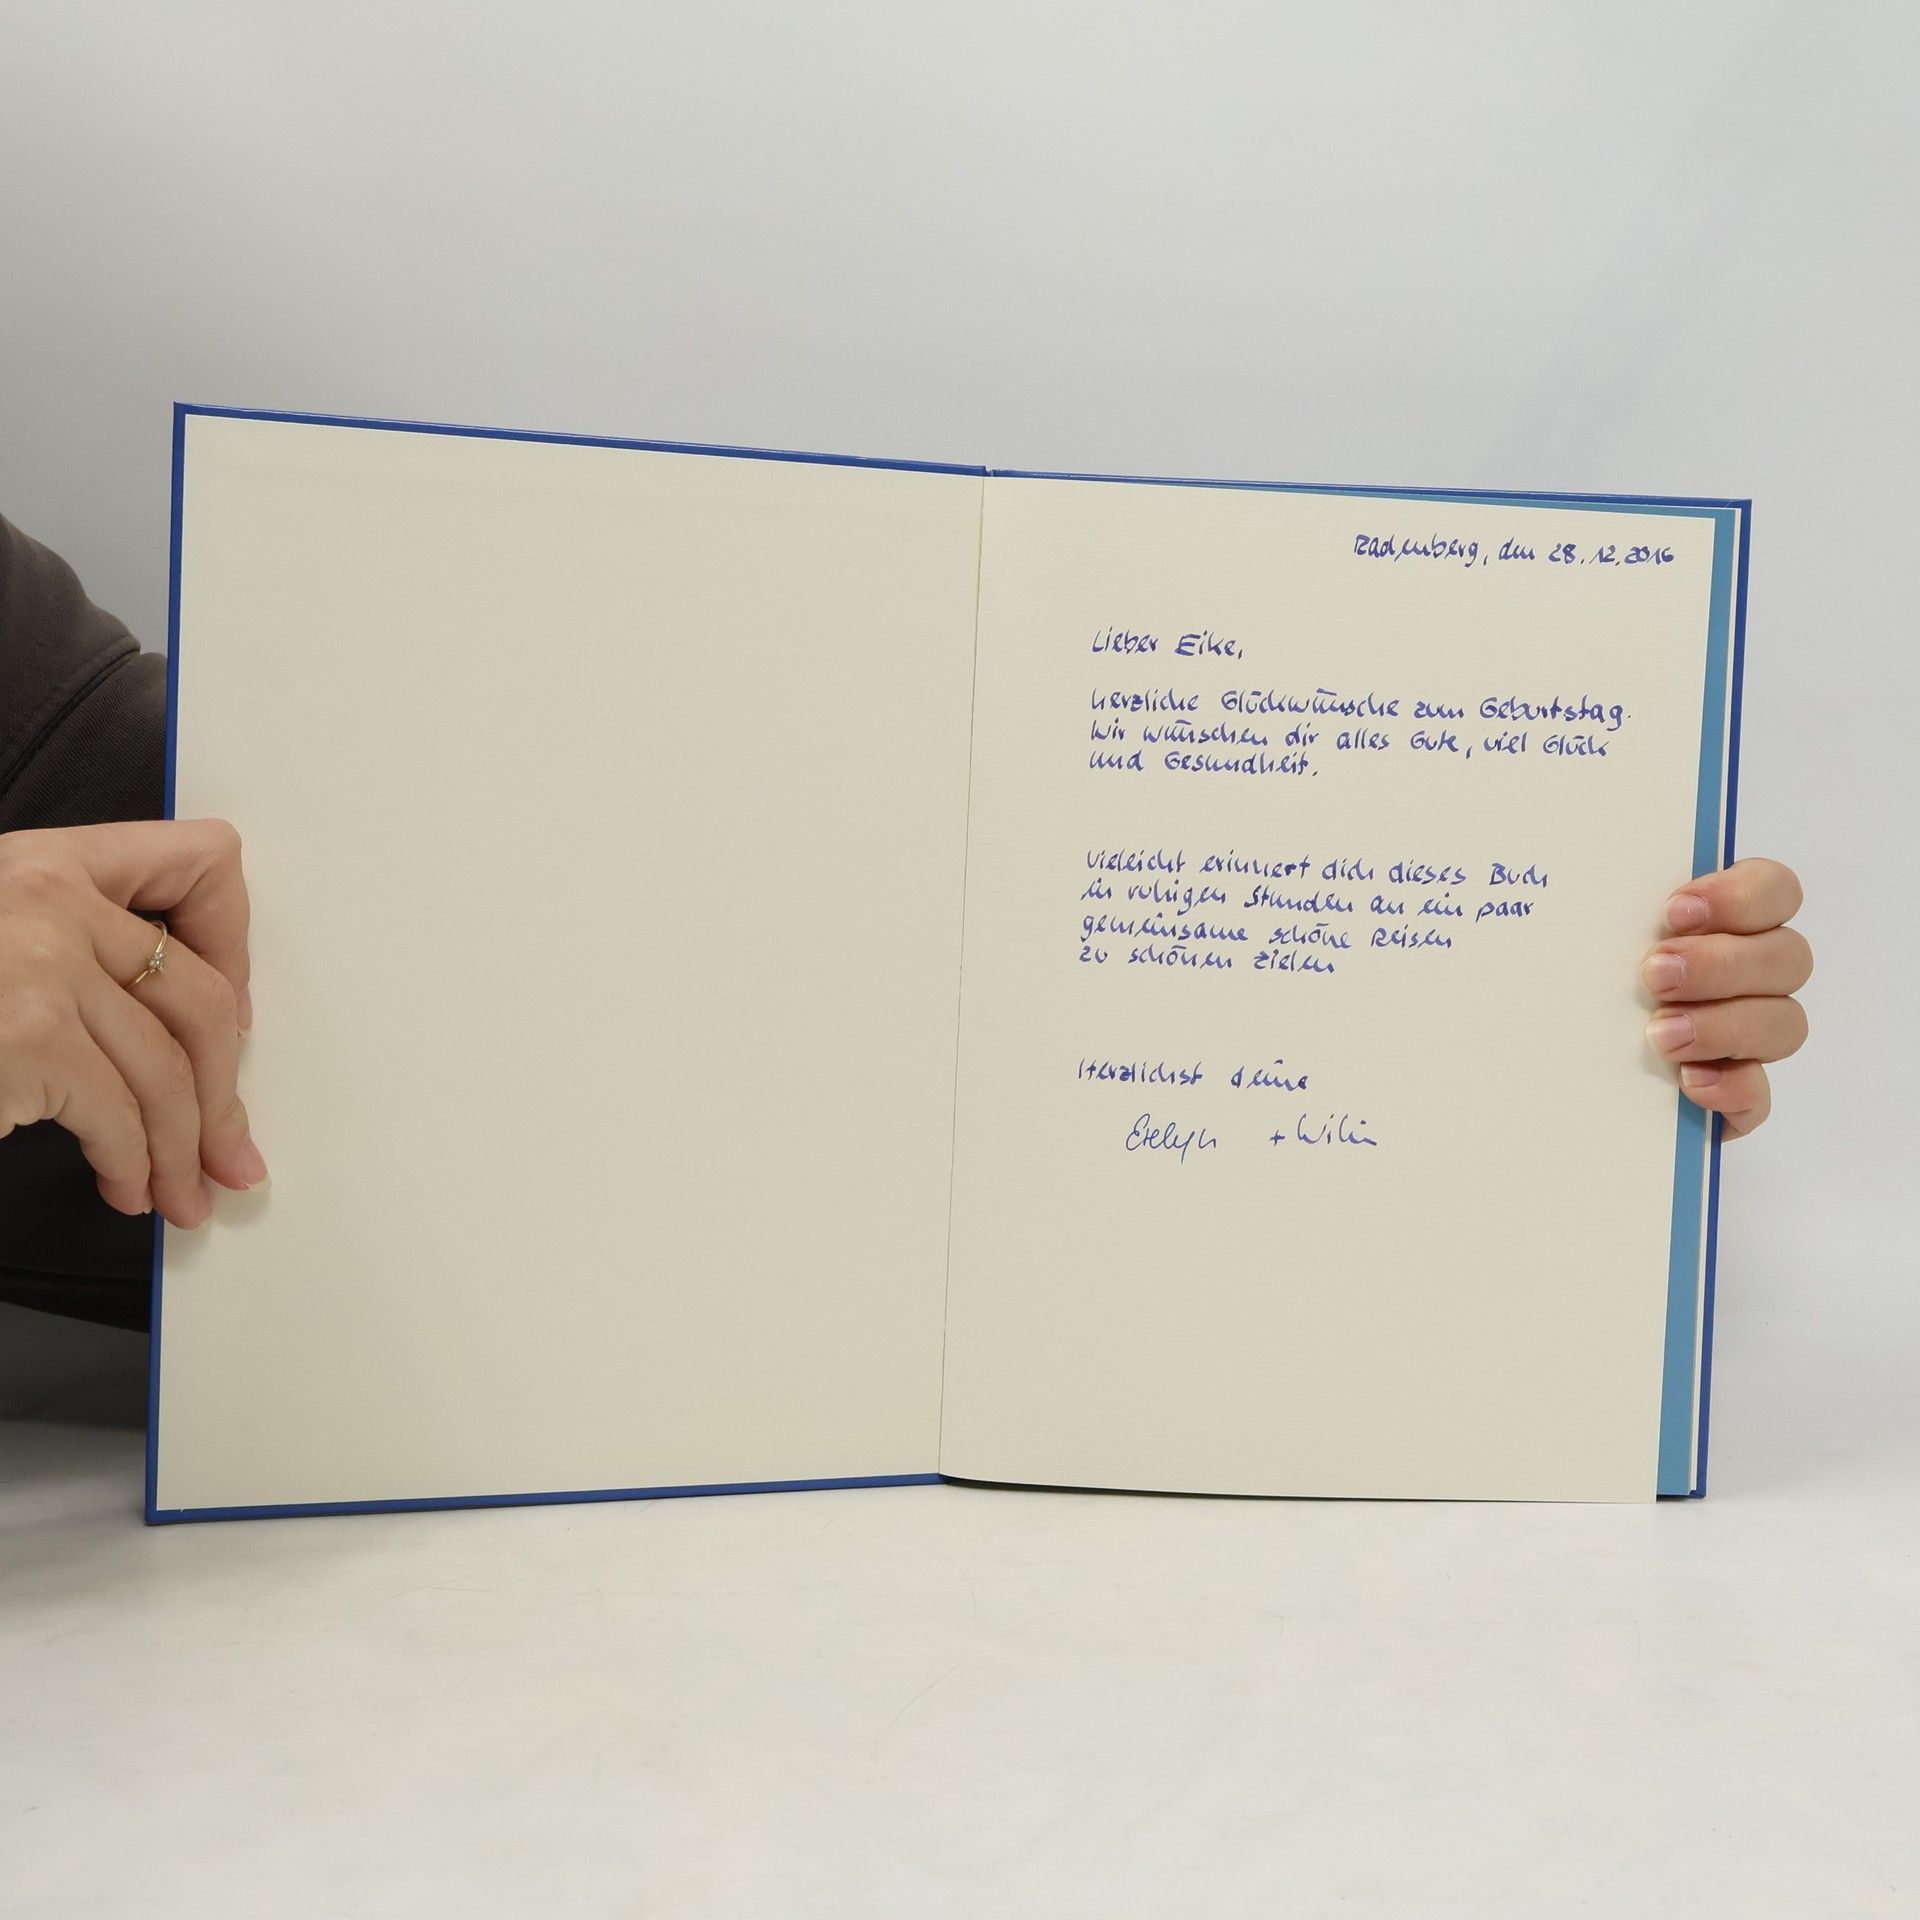 Radenberg, den 28.12.2016
Lieber Eike,
herzliche Glückwünsche zum Geburtstag.
Wir wünschen dir alles Gute, viel Glück
und Gesundheit.
Vieleicht erinnert dich dieses Buch
in ruhigen Stunden an ein paar
gemeinsame schöne Reisen
zu schönen Zielen
Herzlichst deine
Evelyn +